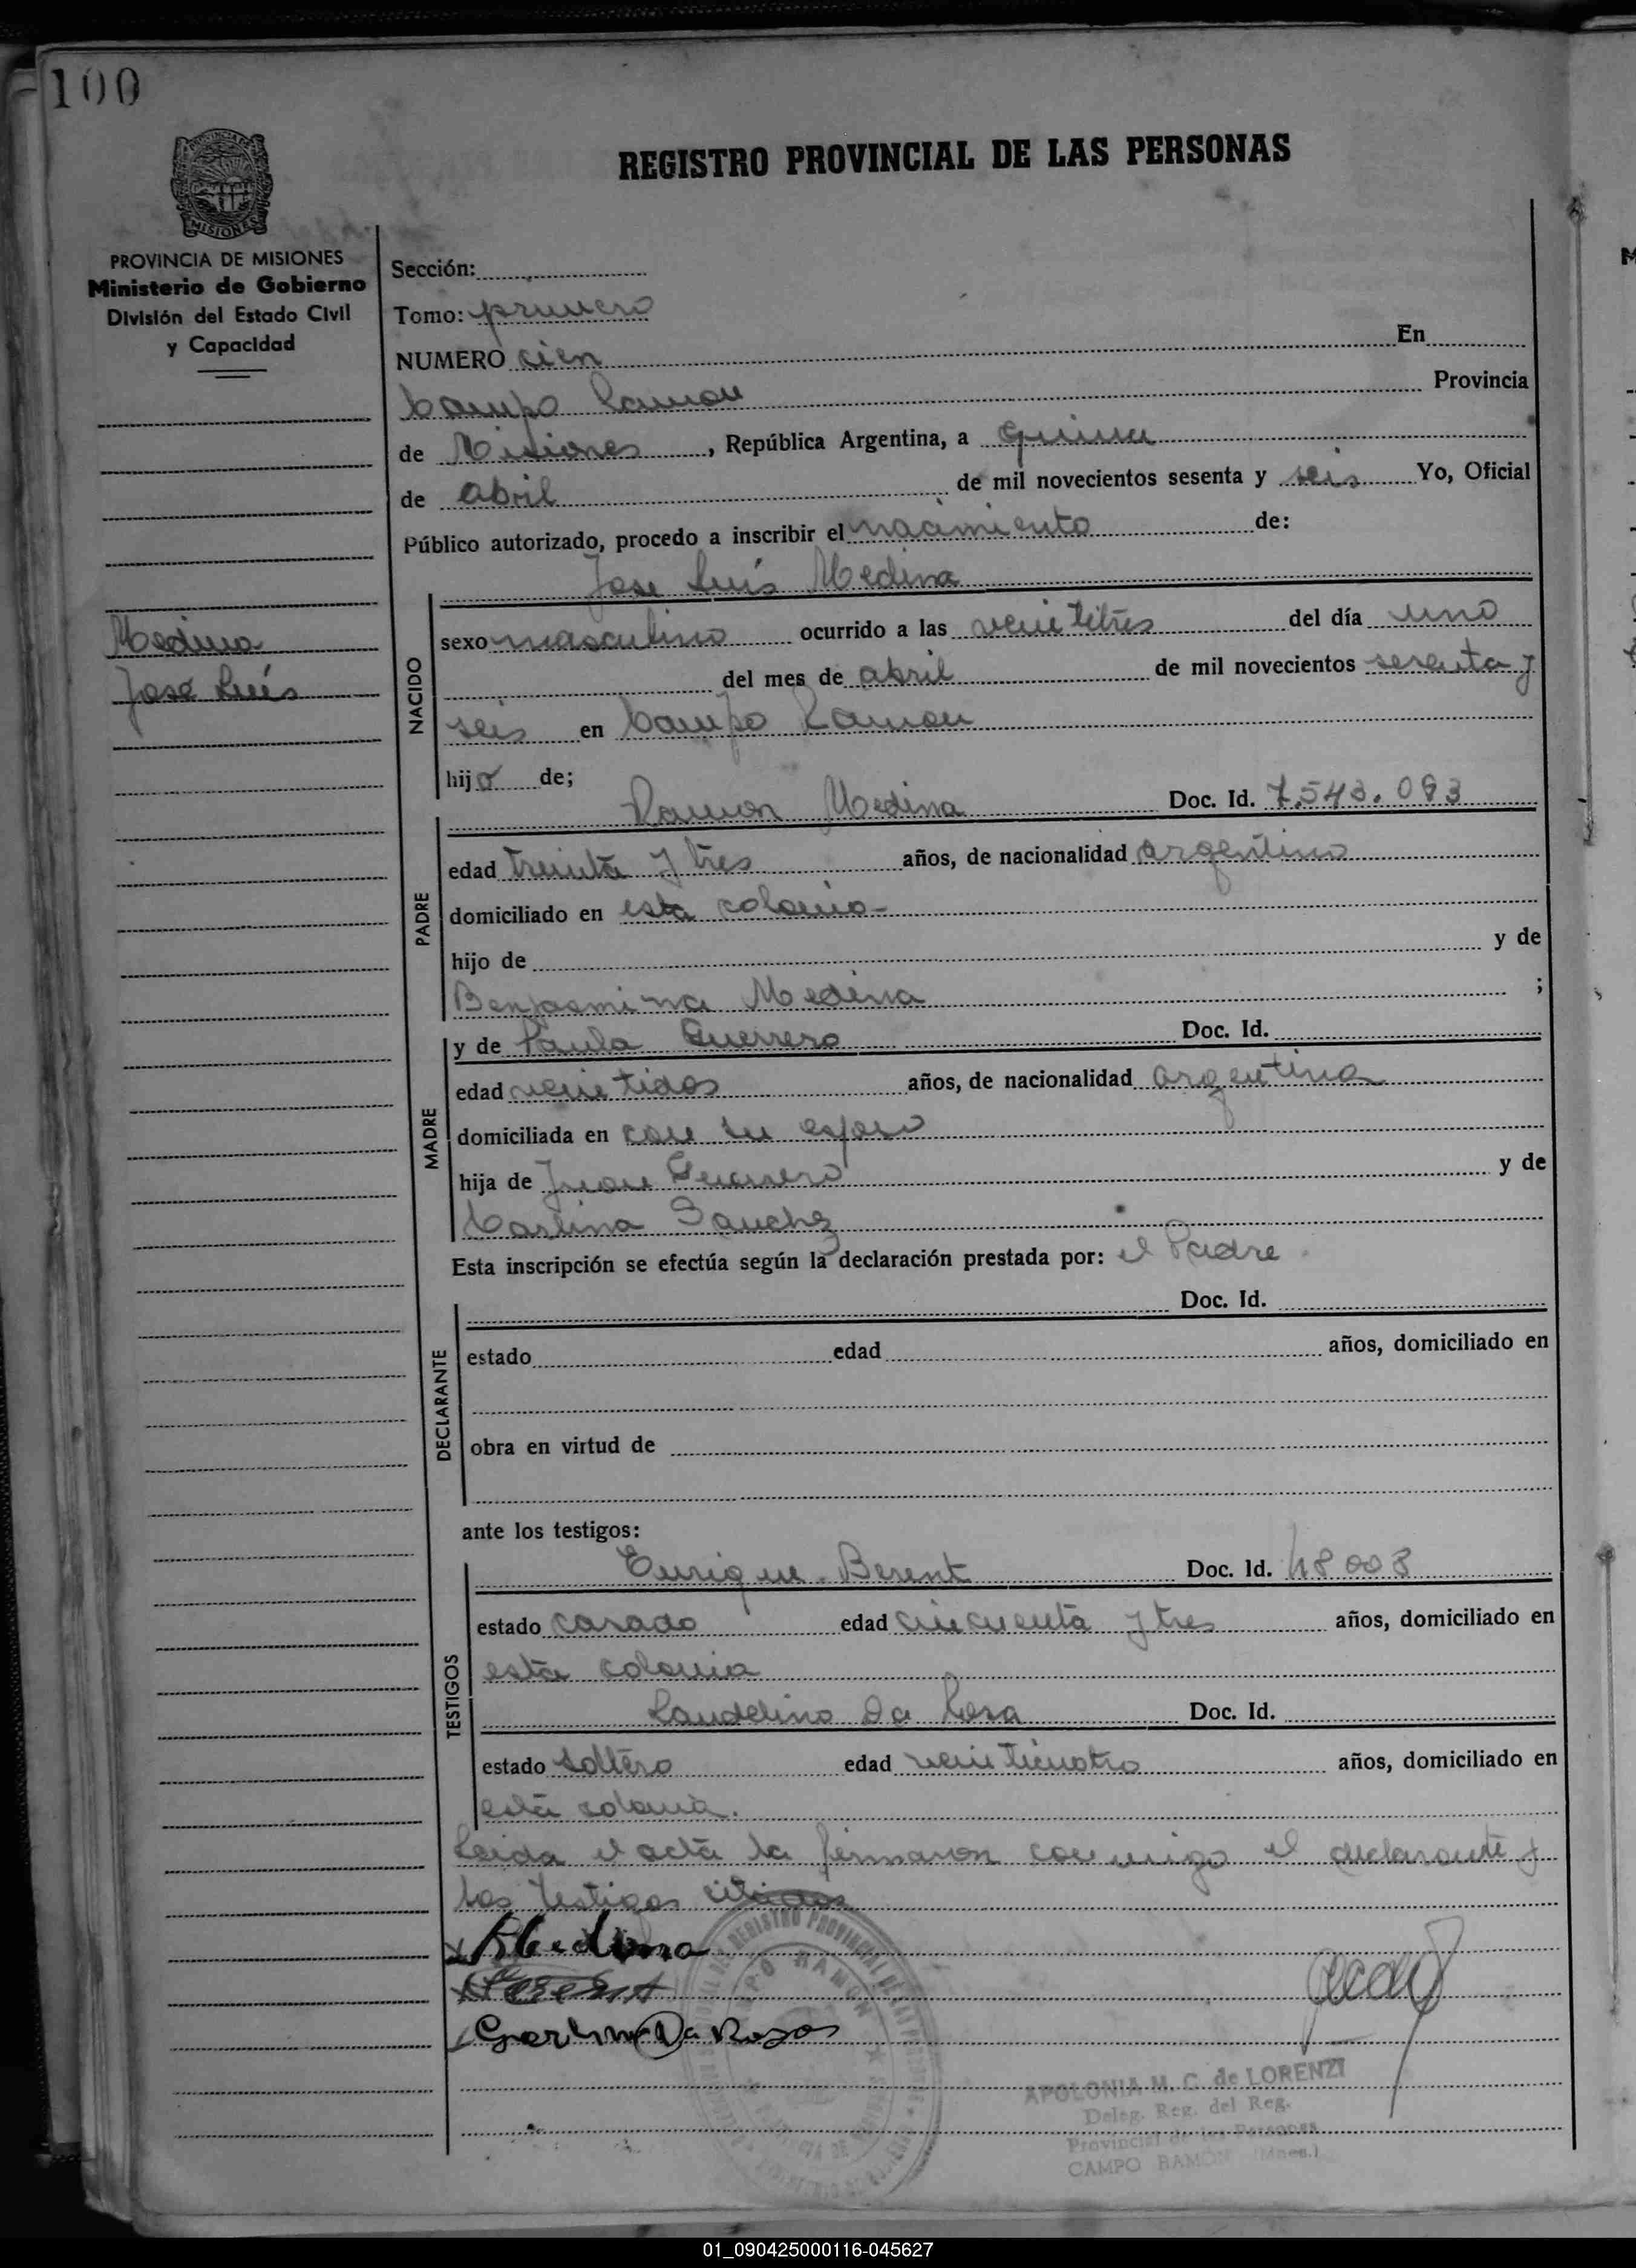 100
PROVINCIA DE MISIONES
Ministerio de Gobierno
División del Estado Civil
y Capacidad
REGISTRO PROVINCIAL DE LAS PERSONAS
Sección:
Tomo: primero
NUMERO cien En
Campo Ramon Provincia
de Misiones, República Argentina, a quince
de abril de mil novecientos sesenta y seis Yo, Oficial
Público autorizado, procedo a inscribir el nacimiento de:
Jose Luís Medina
Medina
José Luís
NACIDO
sexo masculino ocurrido a las veintitres del día uno
del mes de abril de mil novecientos sesenta y
seis en Campo Ramon
hijo de;
PADRE
Ramon Medina Doc. Id. 7.543.093
edad treinta y tres años, de nacionalidad argentino
domiciliado en esta colonia-
hijo de y de
Benjamina Medina ;
MADRE
y de Paula Guerrero Doc. Id.
edad veintidos años, de nacionalidad argentina
domiciliada en con su esposo
hija de Juan Guerrero y de
Carlina Sanchz
Esta inscripción se efectúa según la declaración prestada por: el Padre
DECLARANTE
Doc. Id.
estado edad años, domiciliado en
obra en virtud de
ante los testigos:
TESTIGOS
Enrique Berent Doc. Id. 48008
estado casado edad cincuenta y tres años, domiciliado en
esta colonia
Laudelino Da Rosa Doc. Id.
estado soltero edad veinticuatro años, domiciliado en
esta colonia.
Leida el acta la firmaron conmigo el declarante y
los testigos citados
Medina
Berent
Da Rosa
APOLONIA M. C. de LORENZI
Deleg. Reg. del Reg.
Provincial de las Personas
CAMPO RAMÓN (Mnes.)
01_090425000116-045627